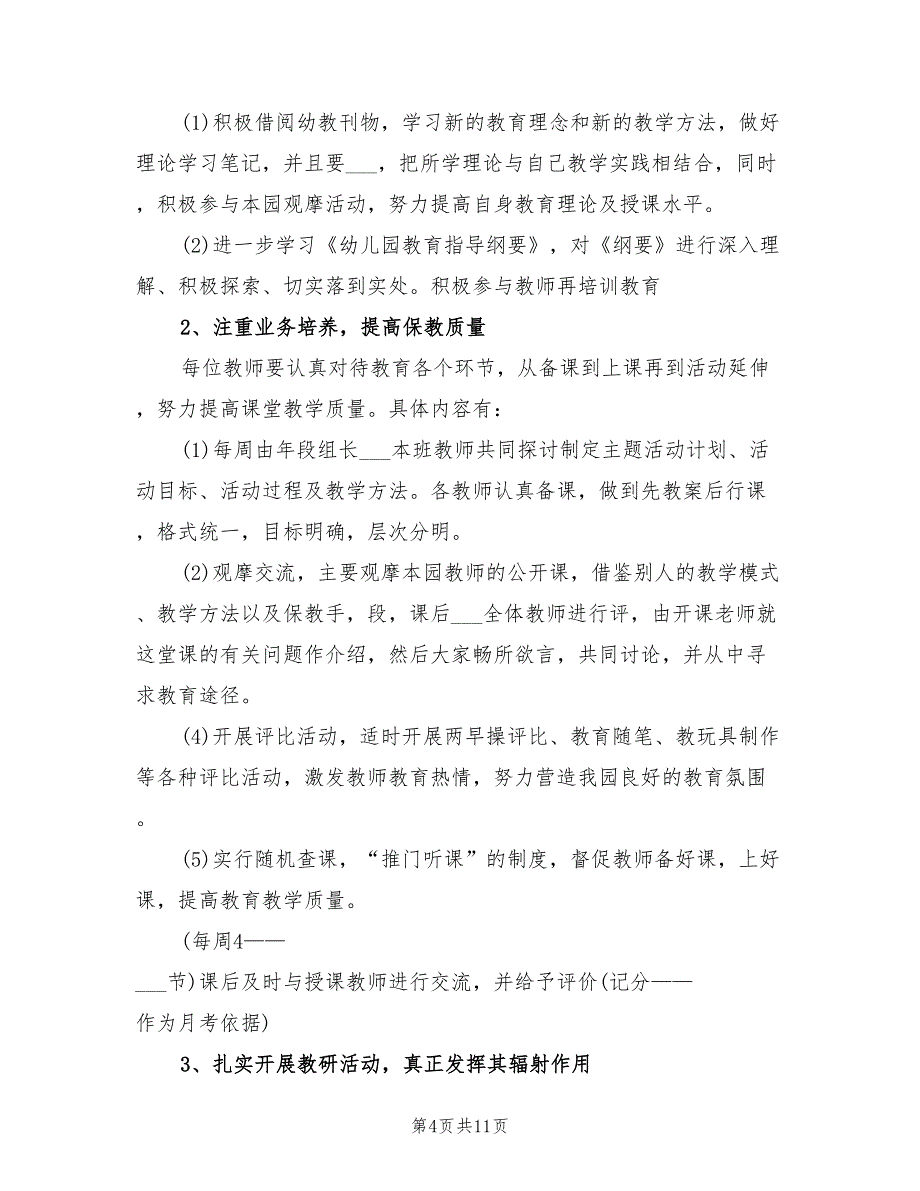 (1)积极借阅幼教刊物，学习新的教育理念和新的教学方法，做好
理论学习笔记，并且要___，把所学理论与自己教学实践相结合，同时
，积极参与本园观摩活动，努力提高自身教育理论及授课水平。
(2)进一步学习《幼儿园教育指导纲要》，对《纲要》进行深入理
解、积极探索、切实落到实处。积极参与教师再培训教育
2、注重业务培养，提高保教质量
每位教师要认真对待教育各个环节，从备课到上课再到活动延伸
，努力提高课堂教学质量。具体内容有：
(1)每周由年段组长___本班教师共同探讨制定主题活动计划、活
动目标、活动过程及教学方法。各教师认真备课，做到先教案后行课
，格式统一，目标明确，层次分明。
(2)观摩交流，主要观摩本园教师的公开课，借鉴别人的教学模式
、教学方法以及保教手，段，课后___全体教师进行评，由开课老师就
这堂课的有关问题作介绍，然后大家畅所欲言，共同讨论，并从中寻
求教育途径。
(4)开展评比活动，适时开展两早操评比、教育随笔、教玩具制作
等各种评比活动，激发教师教育热情，努力营造我园良好的教育氛围
。
(5)实行随机查课，“推门听课”的制度，督促教师备好课，上好
课，提高教育教学质量。
(每周4——
___节)课后及时与授课教师进行交流，并给予评价(记分——
作为月考依据)
3、扎实开展教研活动，真正发挥其辐射作用
第4页共11页